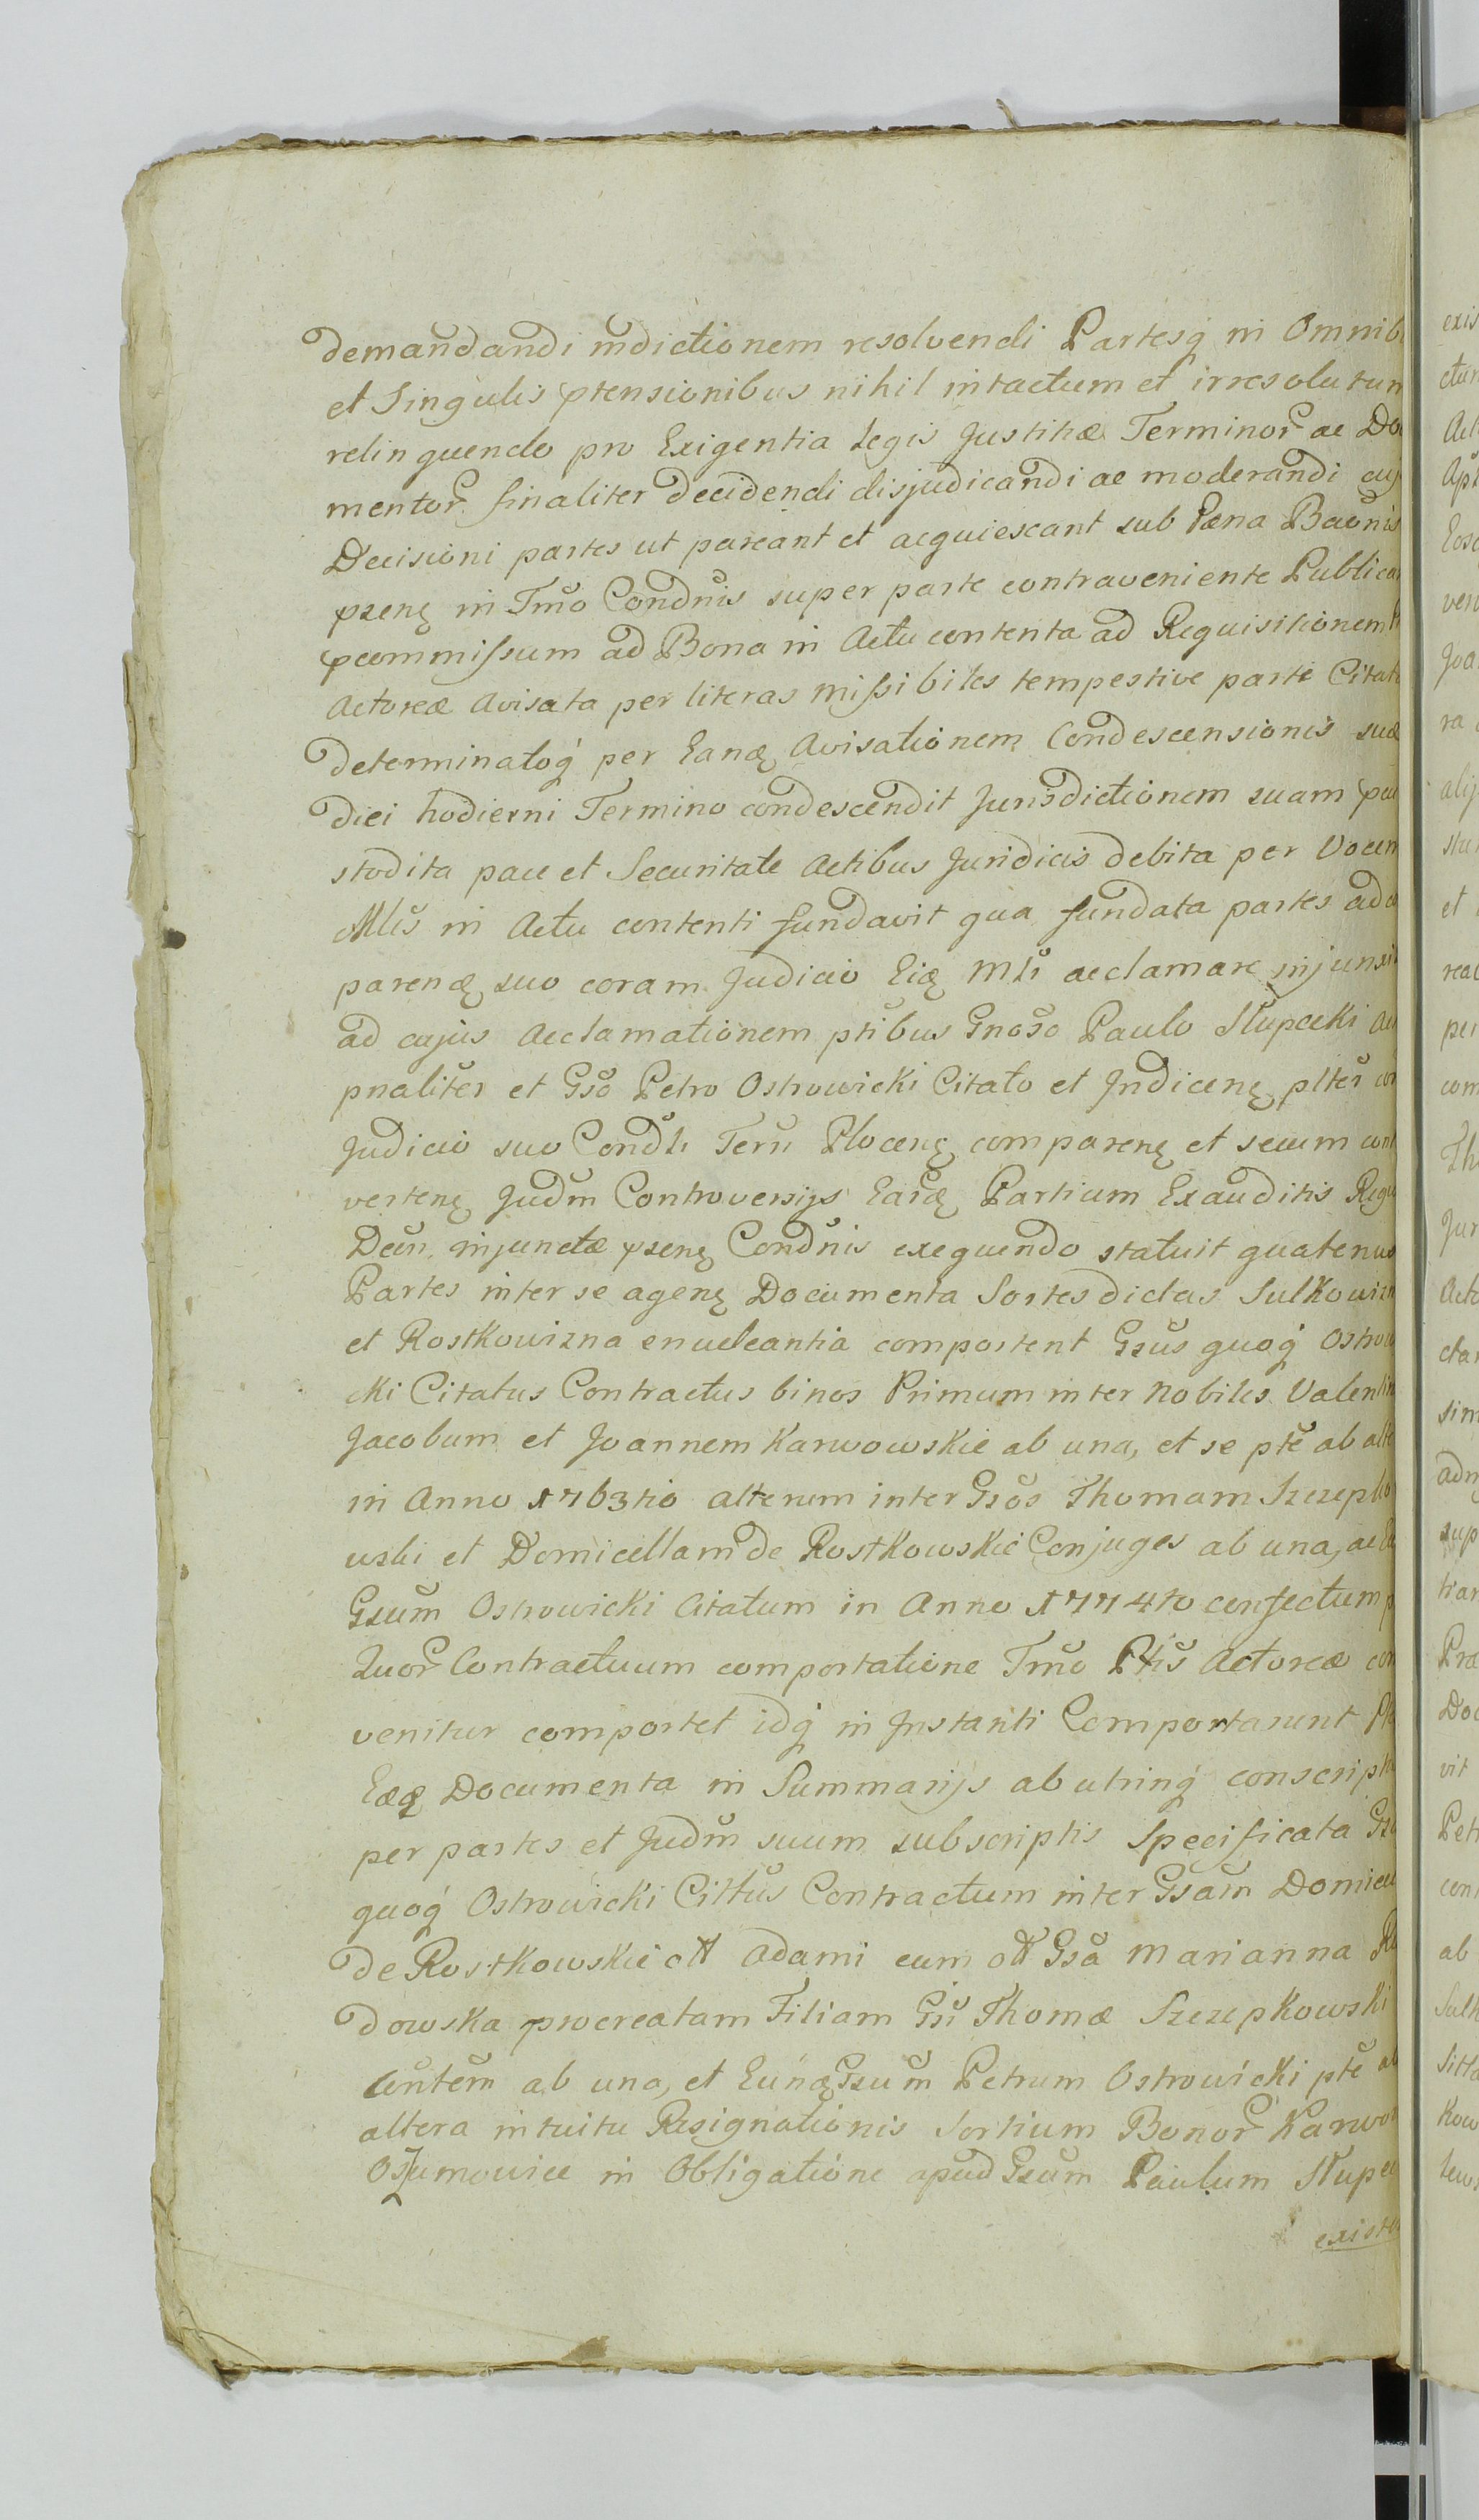 demandandi indictionem resolvendi Partesq́ in Omnib
et Singulis ptensionibus nihil intactum et irresolutum
relinquendo pro Exigentia Legis Justitiæ Terminor ac Do
mentor finaliter decidendi disjudicandi ac moderandi cuj
Decisioni partes ut pareant et acquiescant sub Pæna Baõnis
pzenę in Tmõ Condñis super parte contraveniente Publica
pcommissum ad Bona in Actu contenta ad Requisitionem
Actoreæ Avisata per literas missibiles tempestive parti Citat
determinatoq́ per Eanę Avisationem Condescensionis suæ
diei hodierni Termino condescendit Jurisdictionem suam pcu
stodita pace et Securitate Actibus Juridicis debita per Vocem
Mlis in Actu contenti fundavit qua fundata partes ad
parenę suo coram Judicio Eię Mli acclamare injunxit
ad cujus Acclamationem ptibus Gnoso Paulo Słupecki Act
pnaliter et Gso Petro Ostrowicki Citato et Indicenę plter co
Judicio suo Condli Terñ Plocenę comparenę et secum cont
vertenę Judm Controversijs Earę Partium Exauditis Requ
Decñ injunctæ pzenę Condñis exequendo statuit quatenus
Partes inter se agenę Documenta Sortes dictas Sulkowizn
et Rostkowizna enucleantia comportent Gsus quoq́ Ostrow
cki Citatus Contractus binos Primum inter Nobiles Valentin
Jacobum et Joannem Karwowskie ab una, et se pte ab alte
in Anno 1763tio alterum inter Gsos Thomam Szczepko
wski et Domicellam de Rostkowskie Conjuges ab una, ac
Gsum Ostrowicki Citatum in Anno 1774to confectum p
Quor Contractuum comportatione Tmõ Ptis Actoreæ con
venitur comportet idq́ in Instanti Comportarunt Pt
Eæq Documenta in Summarijs ab utrinq́ conscript
per partes et Judm suum subscriptis Specificata Gs
quoq́ Ostrowicki Cittus Contractum inter Gsam Domicel
de Rostkowskie olt Adami cum olt Gsa Marianna R
dowska procreatam Filiam Gsi Thomæ Szczepkowski
Contem ab una, et Eunę Gsum Petrum Ostrowicki pte ab
altera intuitu Resignationis Sortium Bonor Karwo
Oszumowice in Obligatione apud Gsum Paulum Słupec
existe